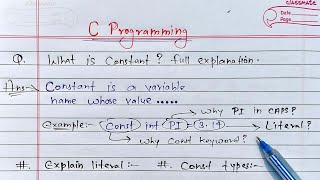 classmate
Date
Page
C Programming
Q. What is Constant? full explanation.
Ans→ Constant is a variable
name whose value .....
Why PI in CAPS?
Example:- Const int PI - 3.14 → Literal?
Why Const keyword?
#. Explain literal:- #. Const types:-